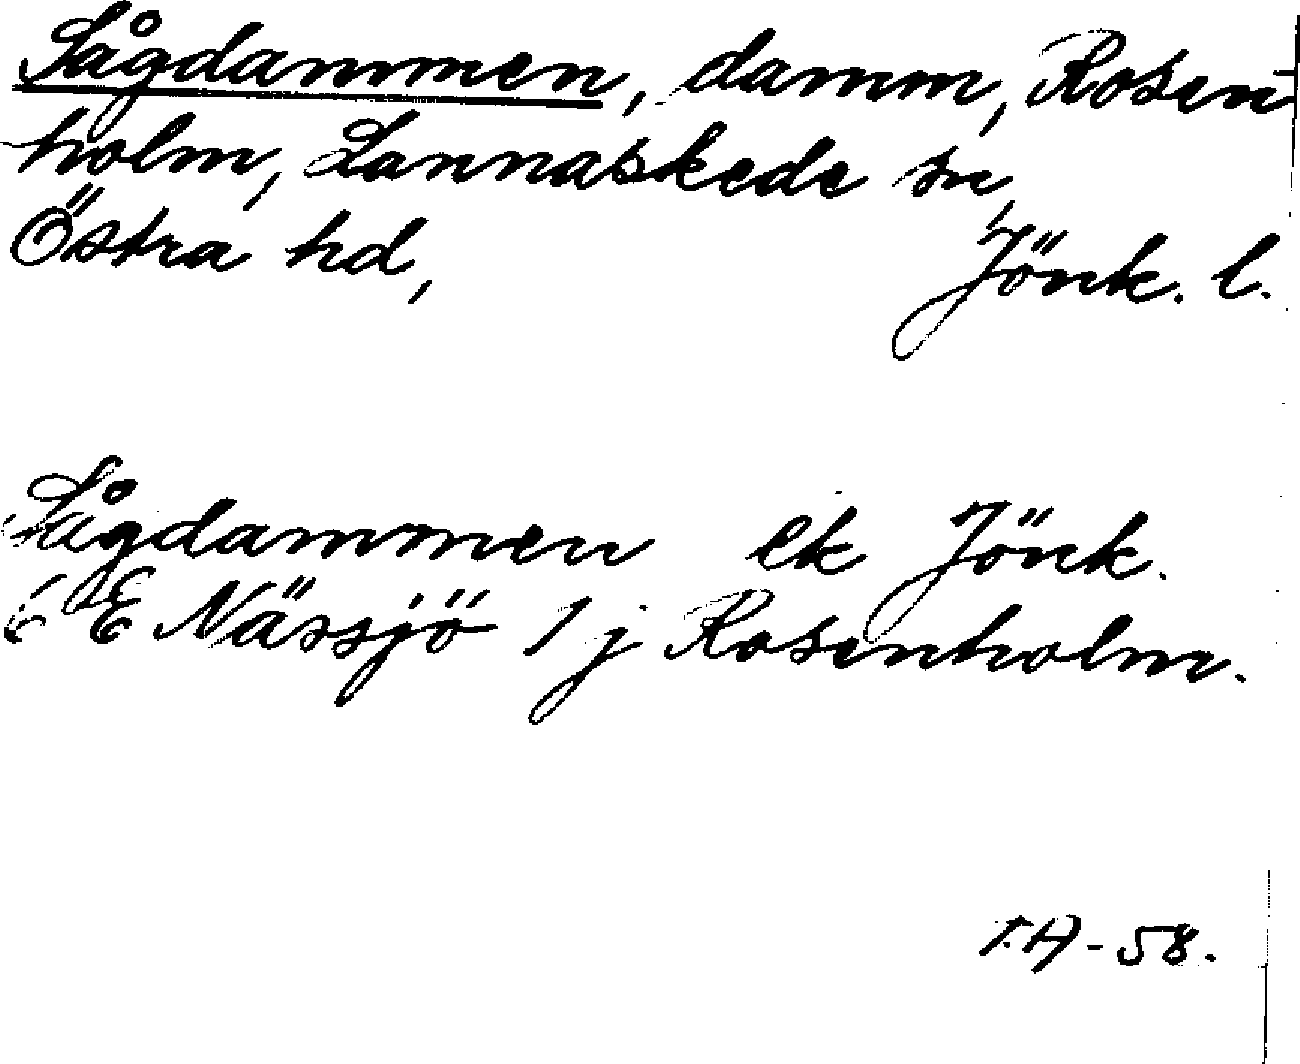 Sågdammen, damm, Rosen-
holm, Lannaskede sn,
Östra hd, Jönk. l.
Sågdammen ek Jönk.
6 E Nässjö 1 j Rosenholm.
T.A-58.